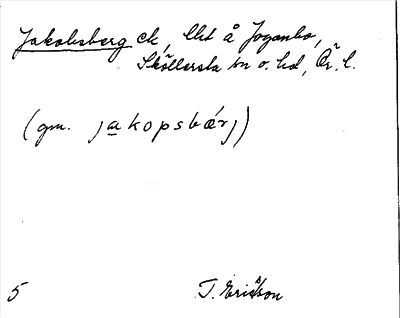 Jakobsberg ck, lht å Joganbo,
Sköllersta sn o. hd, Ör. l.
(gm. jakopsbærj)
5 T. Ericson